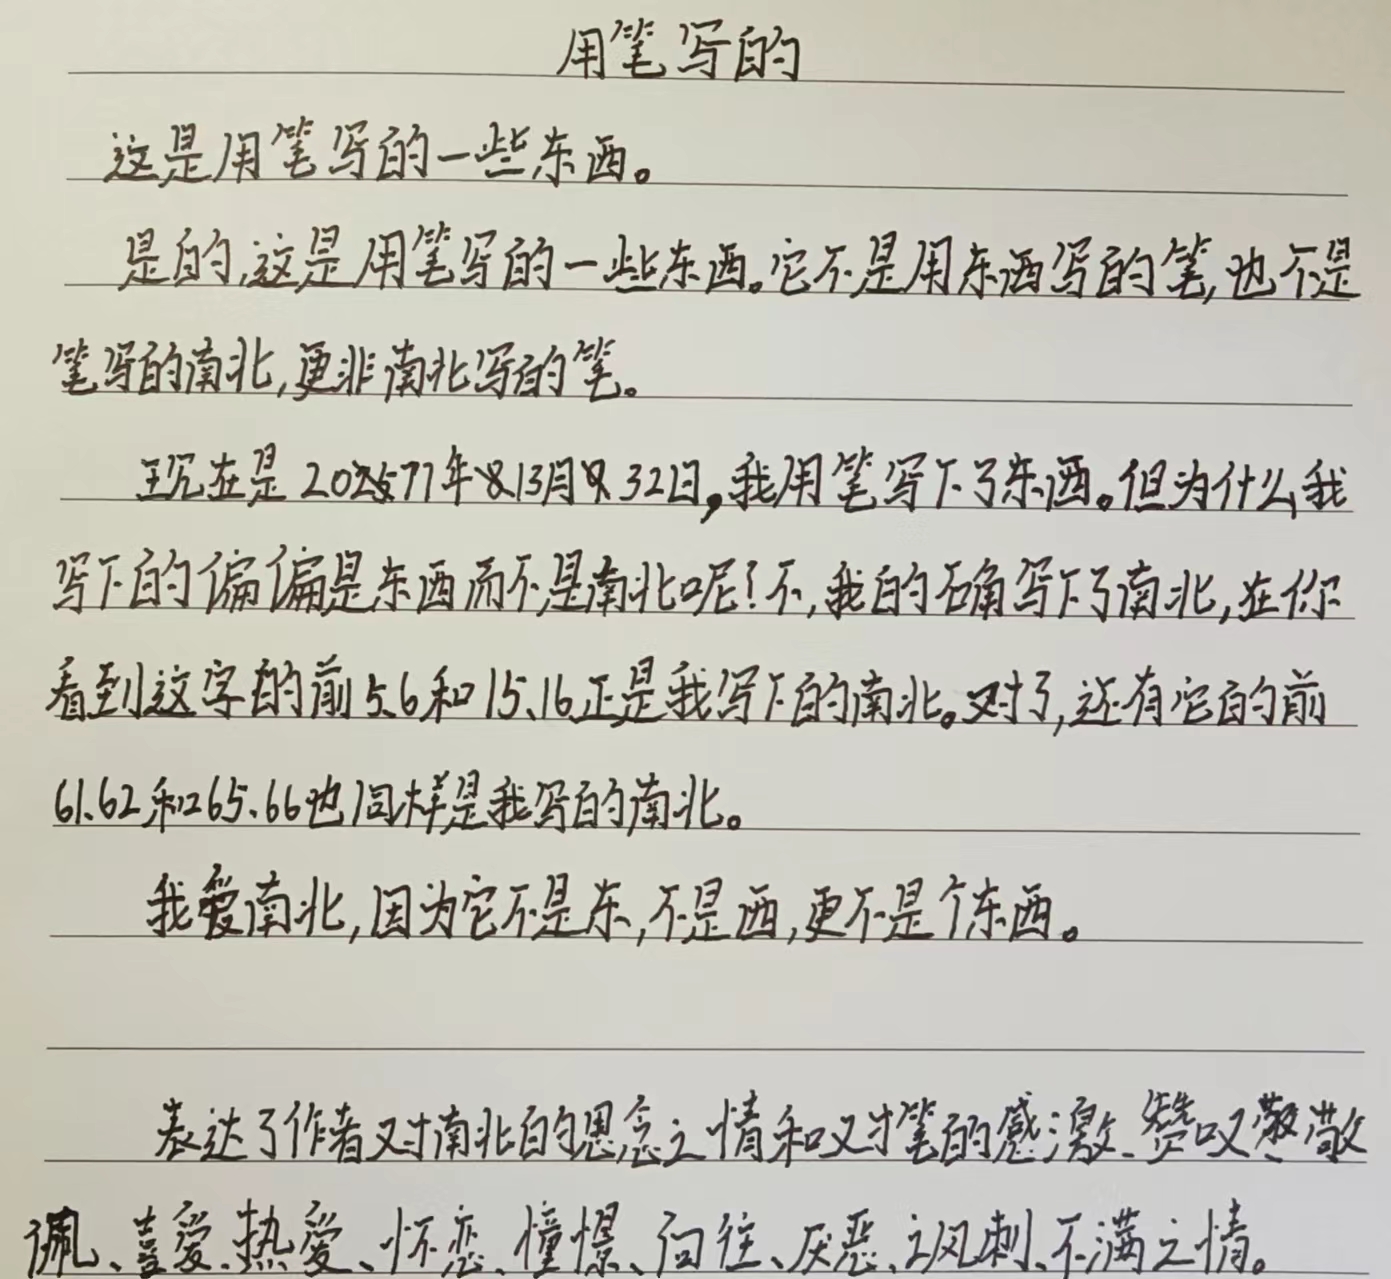 用笔写的
这是用笔写的一些东西。
是的,这是用笔写的一些东西。它不是用东西写的笔,也不是
笔写的南北,更非南北写的笔。
现在是2077年13月32日,我用笔写下了东西。但为什么我
写下的偏偏是东西而不是南北呢!不,我的确写下了南北,在你
看到这字的前5、6和15、16正是我写下的南北。对了,还有它的前
61、62和265、66也同样是我写的南北。
我爱南北,因为它不是东,不是西,更不是个东西。
表达了作者对南北的思念之情和对笔的感激、赞叹、敬
佩、喜爱、热爱、怀恋、憧憬、向往、厌恶、讽刺、不满之情。